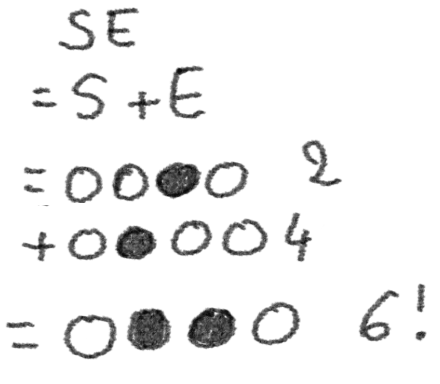 SE
=S+E
=○○●○ 2
+○●○○ 4
=○●●○ 6!